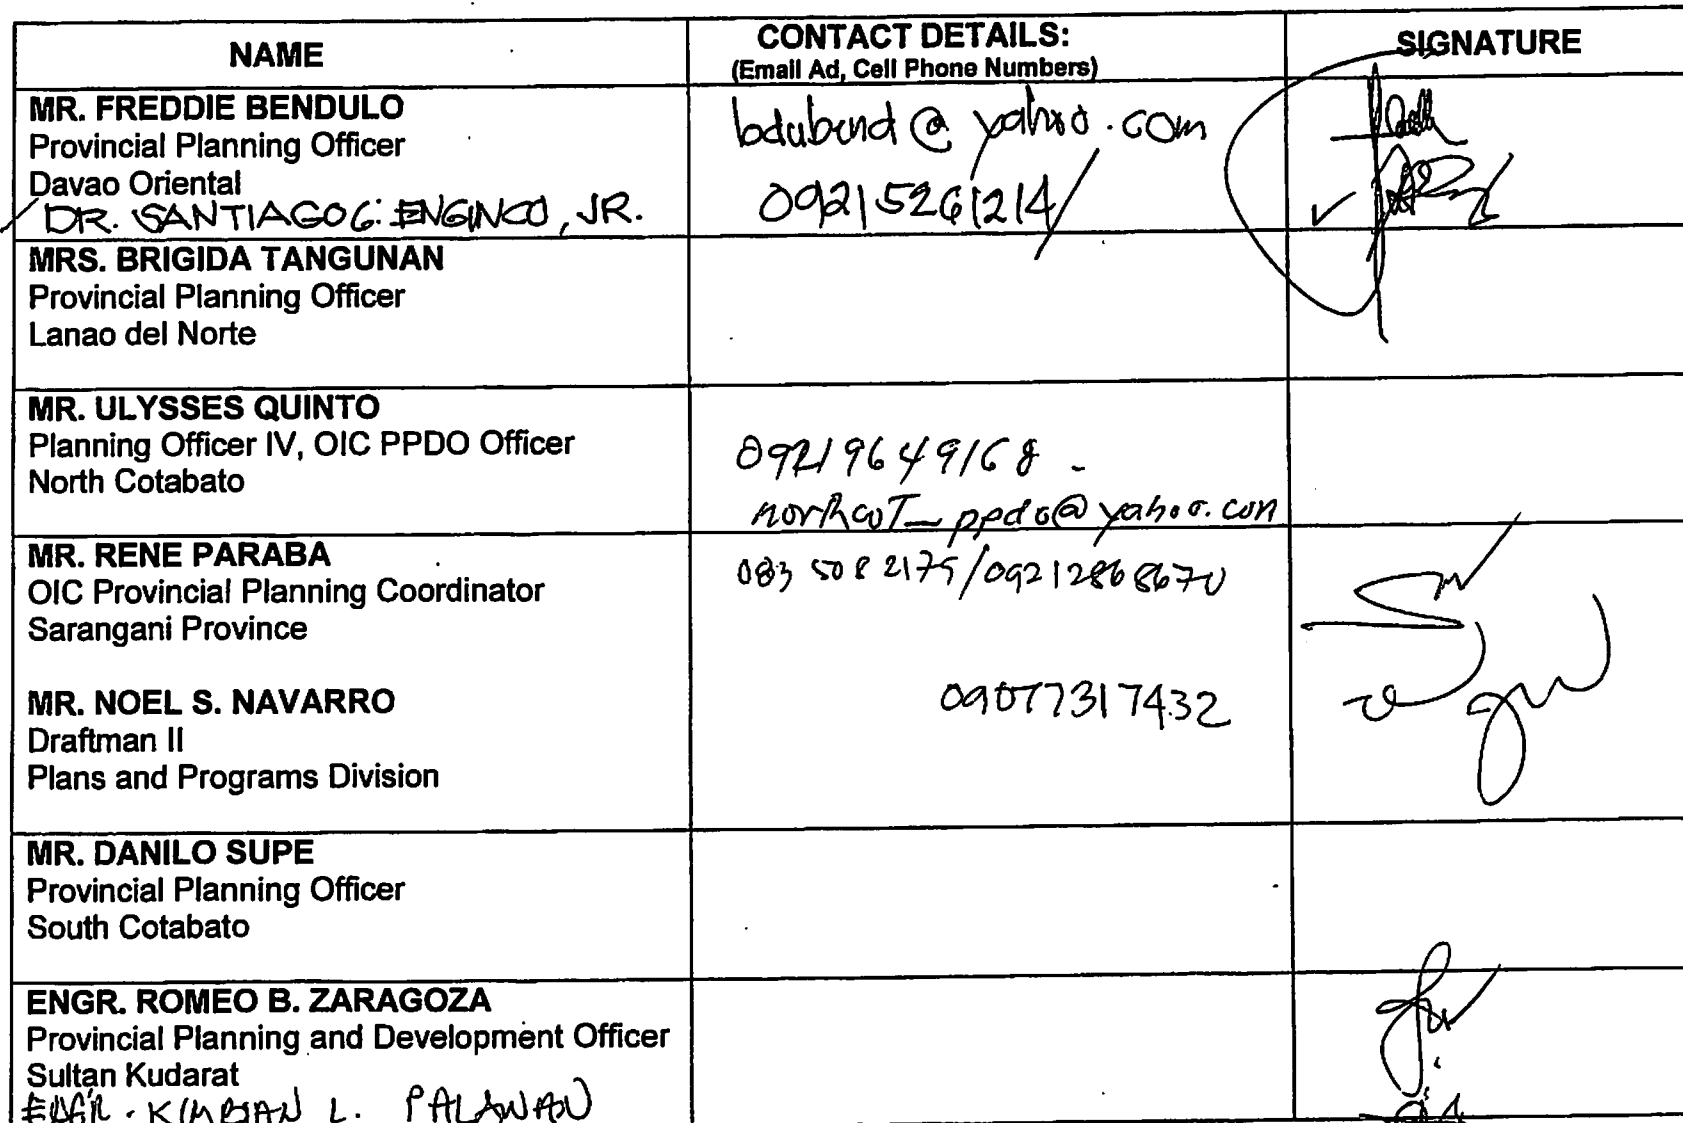 NAME
CONTACT DETAILS:
(Email Ad, Cell Phone Numbers)
SIGNATURE
MR. FREDDIE BENDULO
Provincial Planning Officer
Davao Oriental
DR. SANTIAGO G. ENGINCO, JR.
bdubend@yahoo.com
09215261214/
MRS. BRIGIDA TANGUNAN
Provincial Planning Officer
Lanao del Norte
MR. ULYSSES QUINTO
Planning Officer IV, OIC PPDO Officer
North Cotabato
09219649168 -
northcot_ppdo@yahoo.com
MR. RENE PARABA
OIC Provincial Planning Coordinator
Sarangani Province
083 508 2175/09212868670
MR. NOEL S. NAVARRO
Draftman II
Plans and Programs Division
09077317432
MR. DANILO SUPE
Provincial Planning Officer
South Cotabato
ENGR. ROMEO B. ZARAGOZA
Provincial Planning and Development Officer
Sultan Kudarat
ENGR. L. PALAWAN